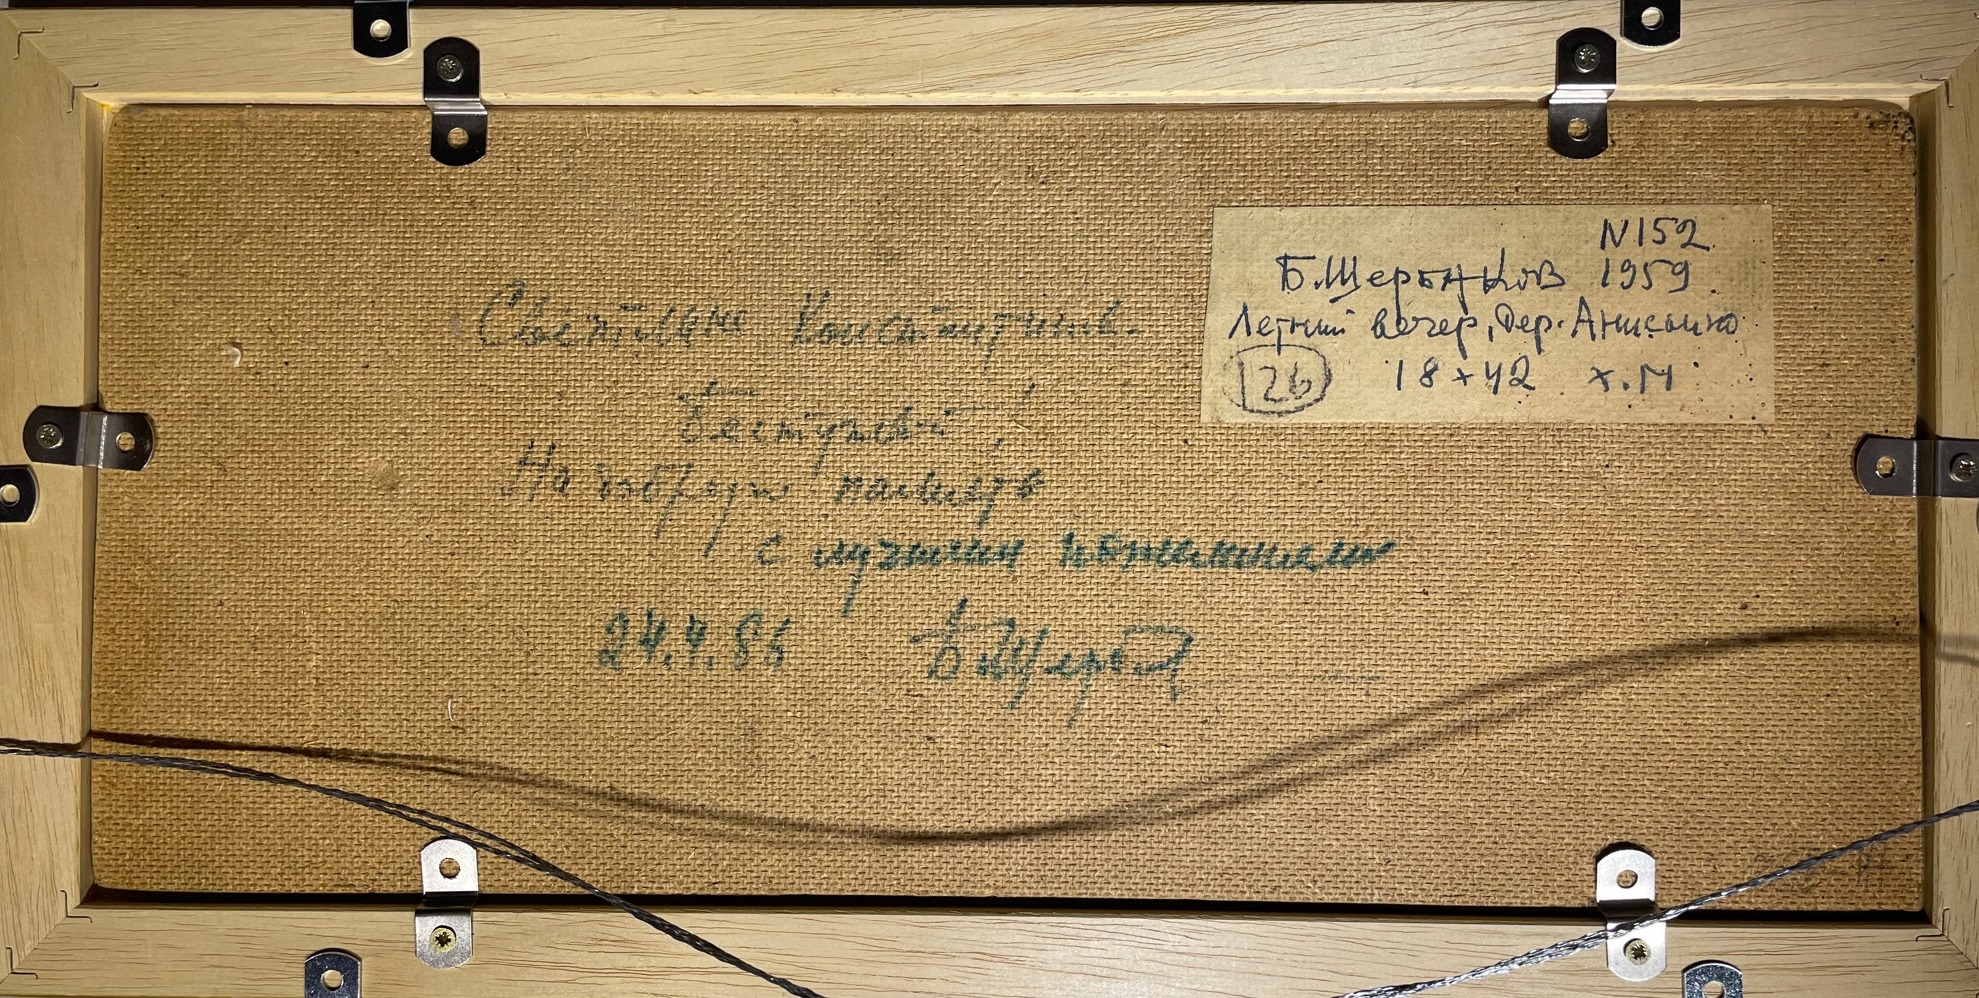 Светлане Константинов.
Бестужевой!
На добрую память
с лучшими пожеланиями
24.4.86 Б Щерб
N152
Б. Щербаков 1959.
Летний вечер, дер. Аниськино
18 × 42 х.м.
126